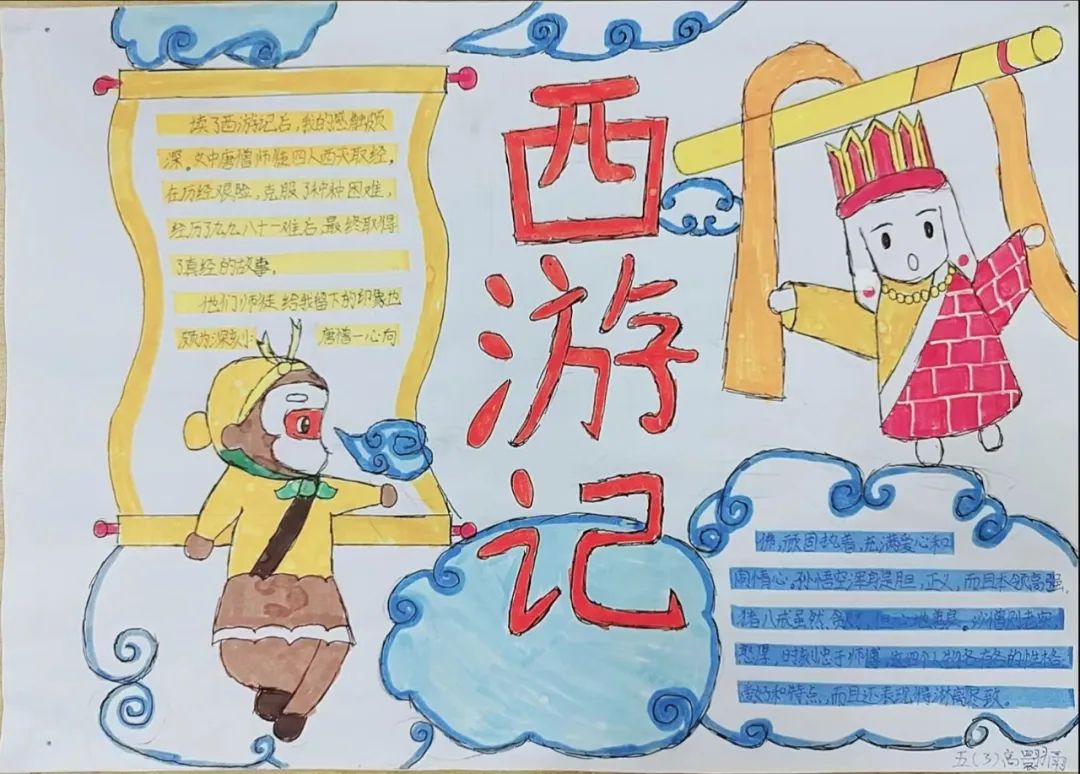 西游记
读了西游记后，我的感触颇
深。文中唐僧师徒四人西天取经，
在历经艰险，克服了种种困难，
经历了九九八十一难后，最终取得
了真经的故事。
他们师徒给我留下的印象也
颇为深刻
唐僧一心向
佛，顽固执着，充满爱心和
同情心。孙悟空浑身是胆，正义，而且本领高强。
猪八戒虽然贪 但心地善良。沙僧则老实
憨厚，时刻忠于师傅 这四个人物各有各的性格
爱好和特点，而且还表现得淋漓尽致。
五（3）高翾雨